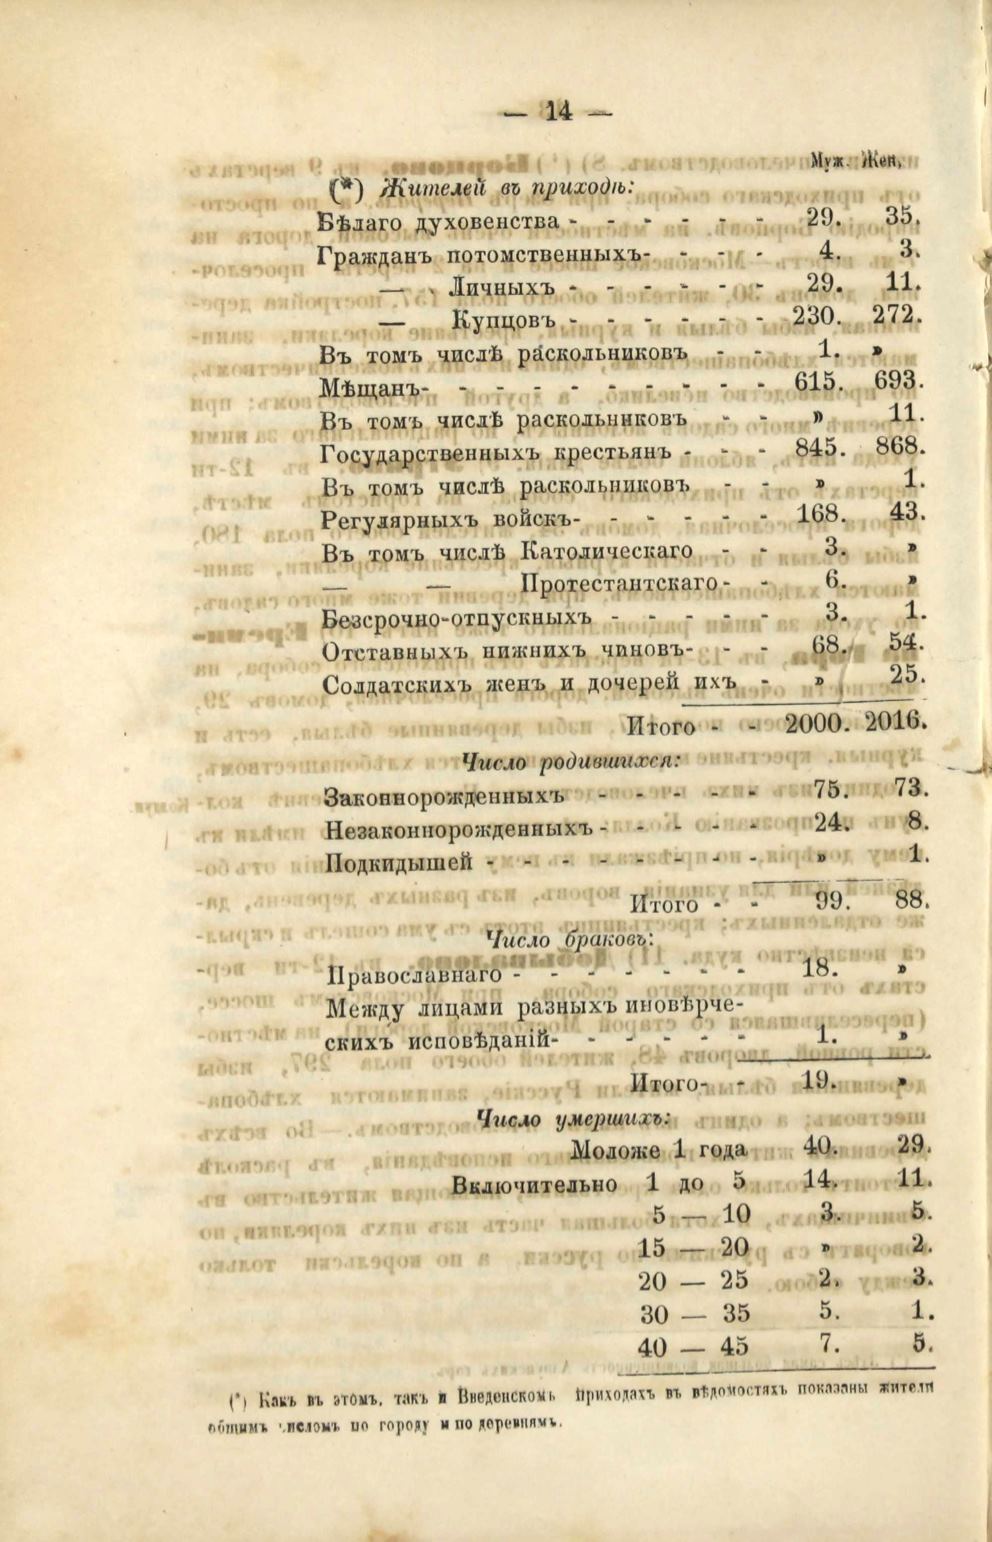 — 14 —
Муж. Жен.
(*) Жителей въ приходѣ:
Бѣлаго духовенства - - - - - - 29. 35.
Гражданъ потомственныхъ- - - - 4. 3.
— Личныхъ - - - - - - 29. 11.
— Купцовъ - - - - - - 230. 272.
Въ томъ числѣ раскольниковъ - - 1. »
Мѣщанъ- - - - - - - - - - 615. 693.
Въ томъ числѣ раскольниковъ - - » 11.
Государственныхъ крестьянъ - - - 845. 868.
Въ томъ числѣ раскольниковъ - - » 1.
Регулярныхъ войскъ- - - - - - 168. 43.
Въ томъ числѣ Католическаго - - 3. »
— — Протестантскаго - - 6. »
Безсрочно-отпускныхъ - - - - - 3. 1.
Отставныхъ нижнихъ чиновъ- - - 68. 54.
Солдатскихъ женъ и дочерей ихъ - » 25.
Итого - - 2000. 2016.
Число родившихся:
Законнорожденныхъ - - - - - 75. 73.
Незаконнорожденныхъ - - - - - 24. 8.
Подкидышей - - - - - - - - » 1.
Итого - - 99. 88.
Число браковъ:
Православнаго - - - - - - - 18. »
Между лицами разныхъ иновѣрче-
скихъ исповѣданій- - - - - - 1. »
Итого- - 19. »
Число умершихъ:
Моложе 1 года 40. 29.
Включительно 1 до 5 14. 11.
5 — 10 3. 5.
15 — 20 » 2.
20 — 25 2. 3.
30 — 35 5. 1.
40 — 45 7. 5.
(*) Какъ въ этомъ, такъ и Введенскомъ приходахъ въ вѣдомостяхъ показаны жители
общимъ числомъ по городу и по деревнямъ.